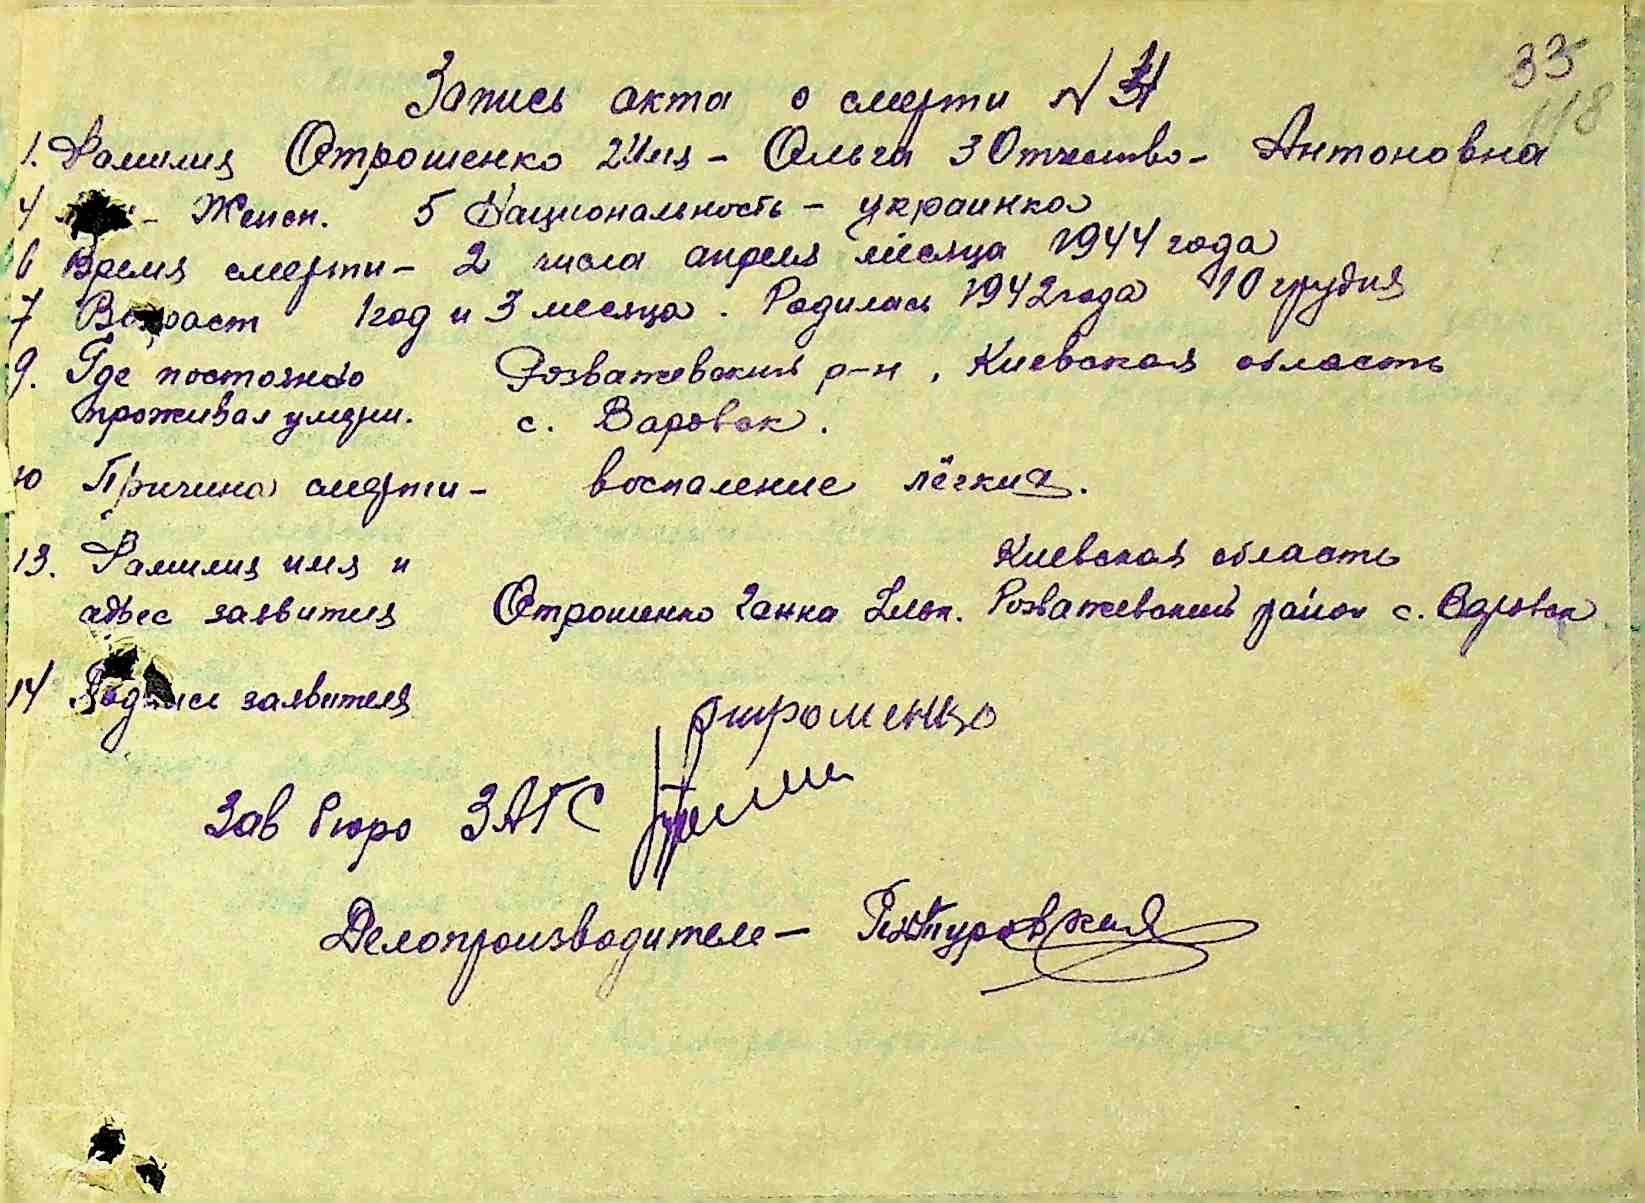 33
118
Запись акта о смерти N 31
1. Фамилия Отрошенко 2 Имя - Ольга 3 Отчество - Антоновна
4 - Женск. 5 Национальность - украинка
6 Время смерти - 2 числа апреля месяца 1944 года
7 Возраст 1 год и 3 месяца. Родилась 1942 года 10 грудня
9. Где постоянно Розважевский р-н, Киевская область
проживал умерш. с. Варовск.
10 Причина смерти - воспаление лёгких.
13. Фамилия имя и Киевская область
адрес заявителя Отрошенко Ганна Розважевский район с. Варовск
14 Подпись заявителя
Отрошенко
Зав бюро ЗАГС
Делопроизводитель -